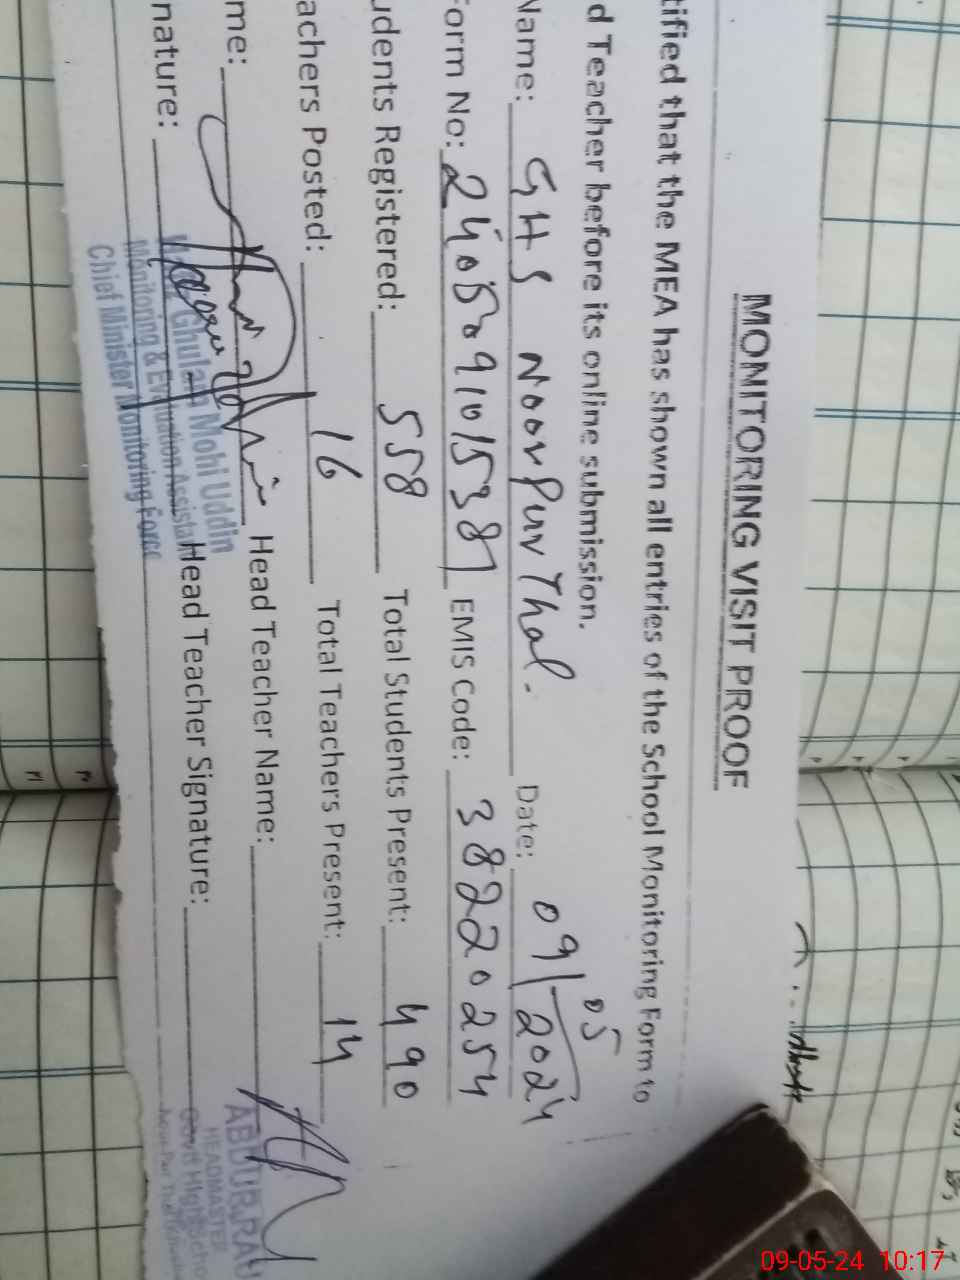 MONITORING VISIT PROOF
tified that the MEA has shown all entries of the School Monitoring Form to
d Teacher before its online submission.
Name: GHS Noorpur Thal. Date: 09/05/2024
Form No: 240509101538 EMIS Code: 38220254
udents Registered: 558 Total Students Present: 490
achers Posted: 16 Total Teachers Present: 14
me: Head Teacher Name:
nature: Head Teacher Signature:
Ghulam Mohi Uddin
Monitoring & Evaluation Assistant
Chief Minister Monitoring Force
ABDUR RAU
HEADMASTER
09-05-24 10:17